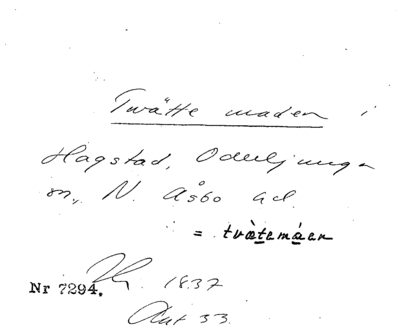 Twätte maden i
Hagstad, Oderljunga
sn, N. Åsbo hd.
= tvàtemáen
Nr 7294. 1837
Akt 33.